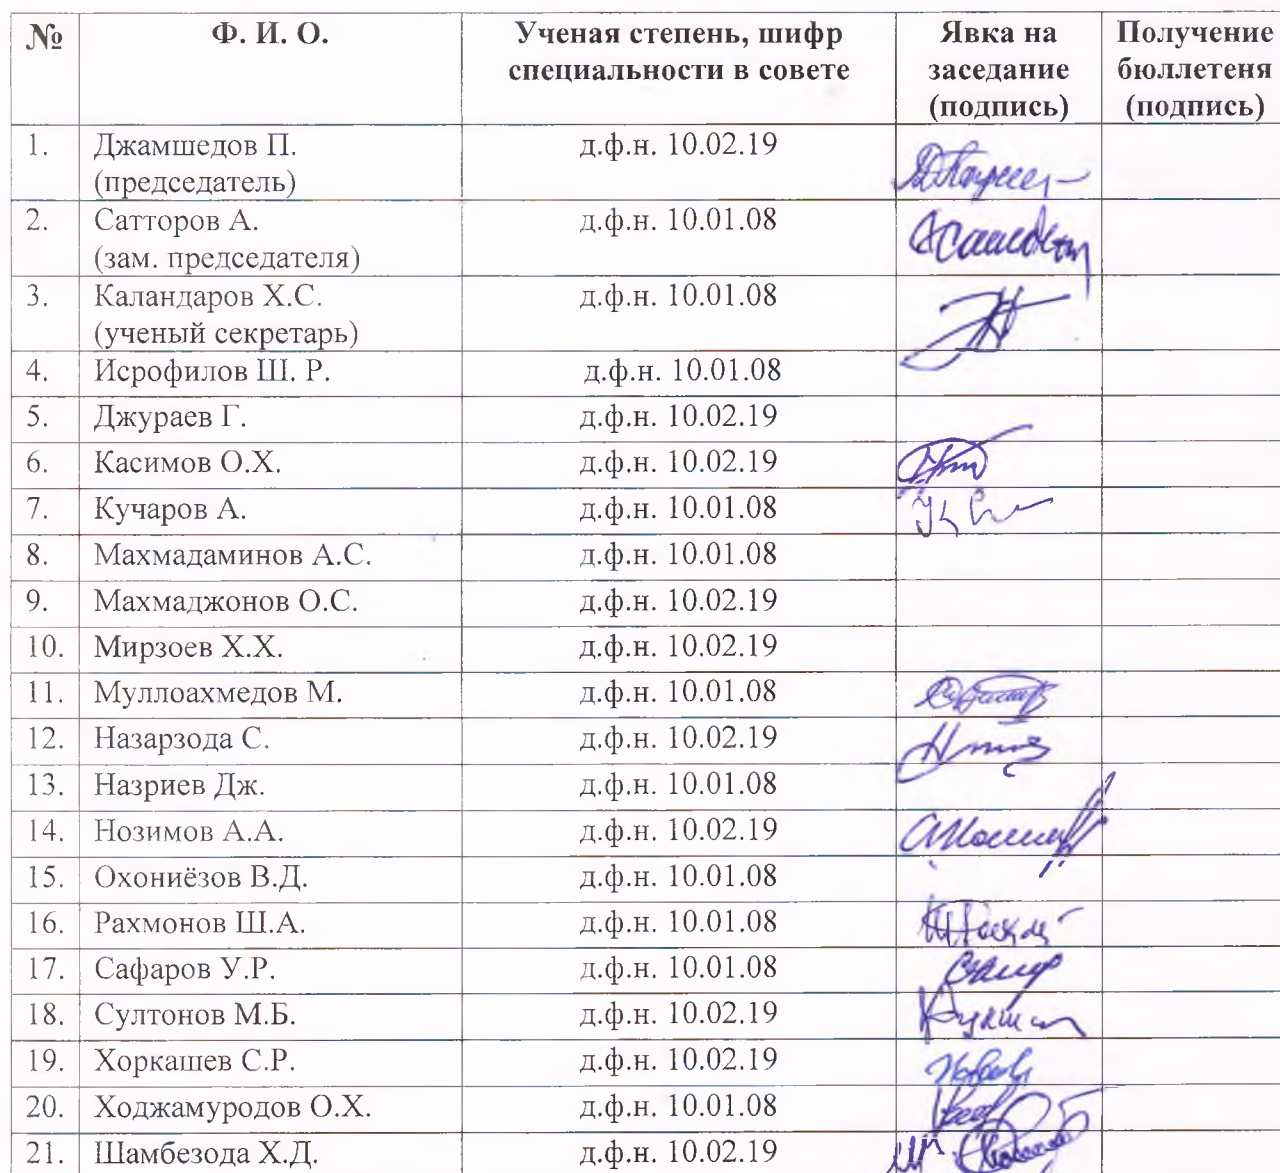 № Ф. И. О. Ученая степень, шифр Явка на Получение
специальности в совете заседание бюллетеня
(подпись) (подпись)
1. Джамшедов П. д.ф.н. 10.02.19
(председатель)
2. Сатторов А. д.ф.н. 10.01.08
(зам. председателя)
3. Каландаров Х.С. д.ф.н. 10.01.08
(ученый секретарь)
4. Исрофилов Ш. Р. д.ф.н. 10.01.08
5. Джураев Г. д.ф.н. 10.02.19
6. Касимов О.Х. д.ф.н. 10.02.19
7. Кучаров А. д.ф.н. 10.01.08
8. Махмадаминов А.С. д.ф.н. 10.01.08
9. Махмаджонов О.С. д.ф.н. 10.02.19
10. Мирзоев Х.Х. д.ф.н. 10.02.19
11. Муллоахмедов М. д.ф.н. 10.01.08
12. Назарзода С. д.ф.н. 10.02.19
13. Назриев Дж. д.ф.н. 10.01.08
14. Нозимов А.А. д.ф.н. 10.02.19
15. Охониёзов В.Д. д.ф.н. 10.01.08
16. Рахмонов Ш.А. д.ф.н. 10.01.08
17. Сафаров У.Р. д.ф.н. 10.01.08
18. Султонов М.Б. д.ф.н. 10.02.19
19. Хоркашев С.Р. д.ф.н. 10.02.19
20. Ходжамуродов О.Х. д.ф.н. 10.01.08
21. Шамбезода Х.Д. д.ф.н. 10.02.19